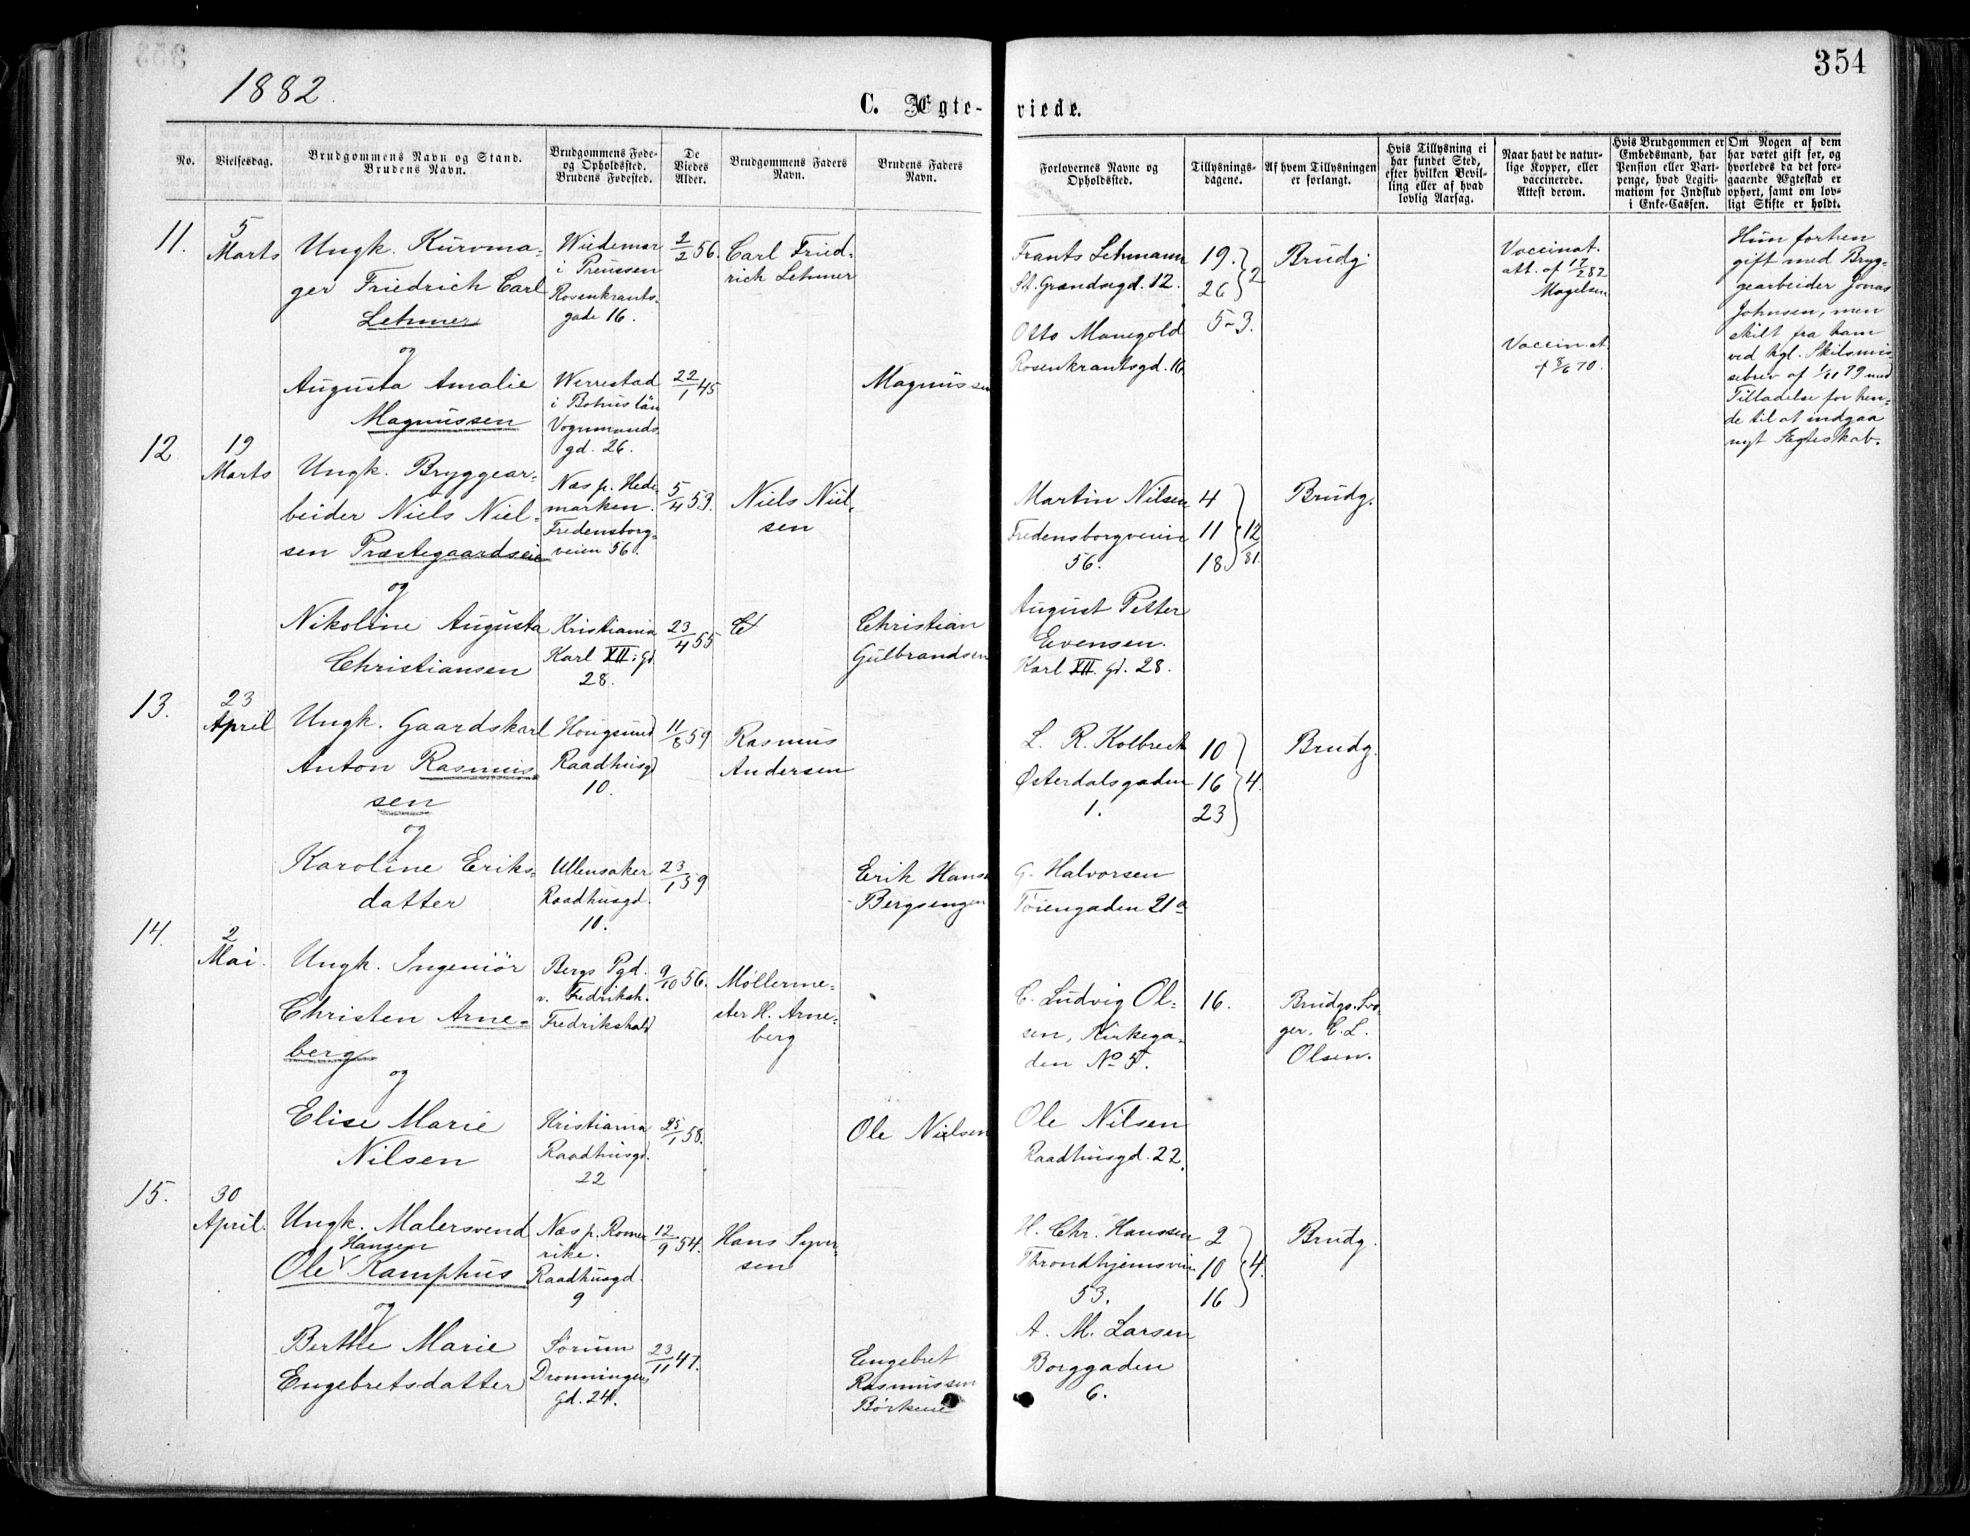 1882.
354
C. Ægte-
viede.
No.
Vielsesdag.
Brudgommens Navn og Stand.
Brudens Navn.
Brudgommens Føde-
og Opholdssted.
Brudens Fødested.
De
Viedes
Alder.
Brudgommens Faders
Navn.
Brudens Faders
Navn.
Forlovernes Navne og
Opholdssted.
Tillysnings-
dagene.
Af hvem Tillysningen
er forlangt.
Hvis Tillysning ei
har fundet Sted,
efter hvilken Bevil-
ling eller af hvad
lovlig Aarsag.
Naar havt de natur-
lige Kopper, eller
vaccinerede.
Attest derom.
Hvis Brudgommen er
Embedsmand, har
Pension eller Vart-
penge, hvad Legiti-
mation for Indskud
i Enke-Cassen.
Om Nogen af dem
har været gift før, og
hvorledes da det fore-
gaaende Ægteskab er
ophørt, samt om lov-
ligt Skifte er holdt.
11.
5
Marts
Ungk. Kurvma-
ger Friedrich Carl
Lehmer
og
Augusta Amalie
Magnussen
Wiedemar
i Preussen
Rosenkrants-
gade 16.
Werrestad
i Bohuslän
Vognmands
gd. 26.
2/2 56.
22/1 45
Carl Fried-
rich Lehmer
Magnussen
Frants Lehmann
St. Grændsegd. 12.
Otto Manegold
Rosenkrantsgd. 16
19.
26 } 2
5-3.
Brudg.
Vaccinat.
att. af 17/2 82
Magelsen
Vaccin.at.
af 8/6 70.
Hun forhen
gift med Bryg-
gearbeider Jonas
Johnsen, men
skilt fra ham
ved kgl. Skilsmis-
sebrev af 1/11 79 med
Tilladelse for hen-
de til at indgaa
nyt Ægteskab.
12
19
Marts
Ungk. Bryggear-
beider Niels Niel-
sen Præstegaardseie
og
Nikoline Augusta
Christiansen
Næs p. Hede-
marken.
Fredensborg-
veien 56.
Kristiania
Karl XII: Gd.
28.
5/4 53.
23/4 55
Niels Niel-
sen
Christian
Gulbrandsen
Martin Nilsen
Fredensborgveien
56.
August Petter
Evensen.
Karl XII. Gd. 28.
4
11
18 } 12/81.
Brudg.
13.
23
April
Ungk. Gaardskarl
Anton Rasmus-
sen
og
Karoline Eriks-
datter
Hougsund
Raadhusgd
10.
Ullensaker
Raadhusgd.
10.
11/8 59
23/1 59
Rasmus
Andersen
Erik Hans.
Bergsengen
L. R. Kolbreck
Østerdalsgaden
1.
G. Halvorsen
Tøiengaden 21a
10
16
23 } 4.
Brudg.
14.
2
Mai.
Ungk. Ingeniör
Christen Arne-
berg
og
Elise Marie
Nilsen
Bergs Pgd.
v. Fredriksh.
Fredrikshald
Kristiania
Raadhusgd.
22
9/10 56.
25/1 58.
Møllerme-
ster H. Arne-
berg
Ole Nielsen
C. Ludvig Ol-
sen, Kirkega-
den No 5.
Ole Nilsen
Raadhusgd. 22.
16.
Brudgs. Svo-
ger, C. L.
Olsen.
15.
30
April.
Ungk. Malersvend
Hansen
Ole Kamphus
og
Berthe Marie
Engebretsdatter
Næs p. Rome-
rike.
Raadhusgd.
9
Sørum
Dronningens
Gd. 24.
12/9 54.
23/11 47.
Hans Syver-
sen
Engebret
Rasmussen
Børkeeie
H. Chr. Hanssen
Throndhjemsveien
53.
A. M. Larsen
Borggaden
6.
2
10
16 } 4.
Brudg.